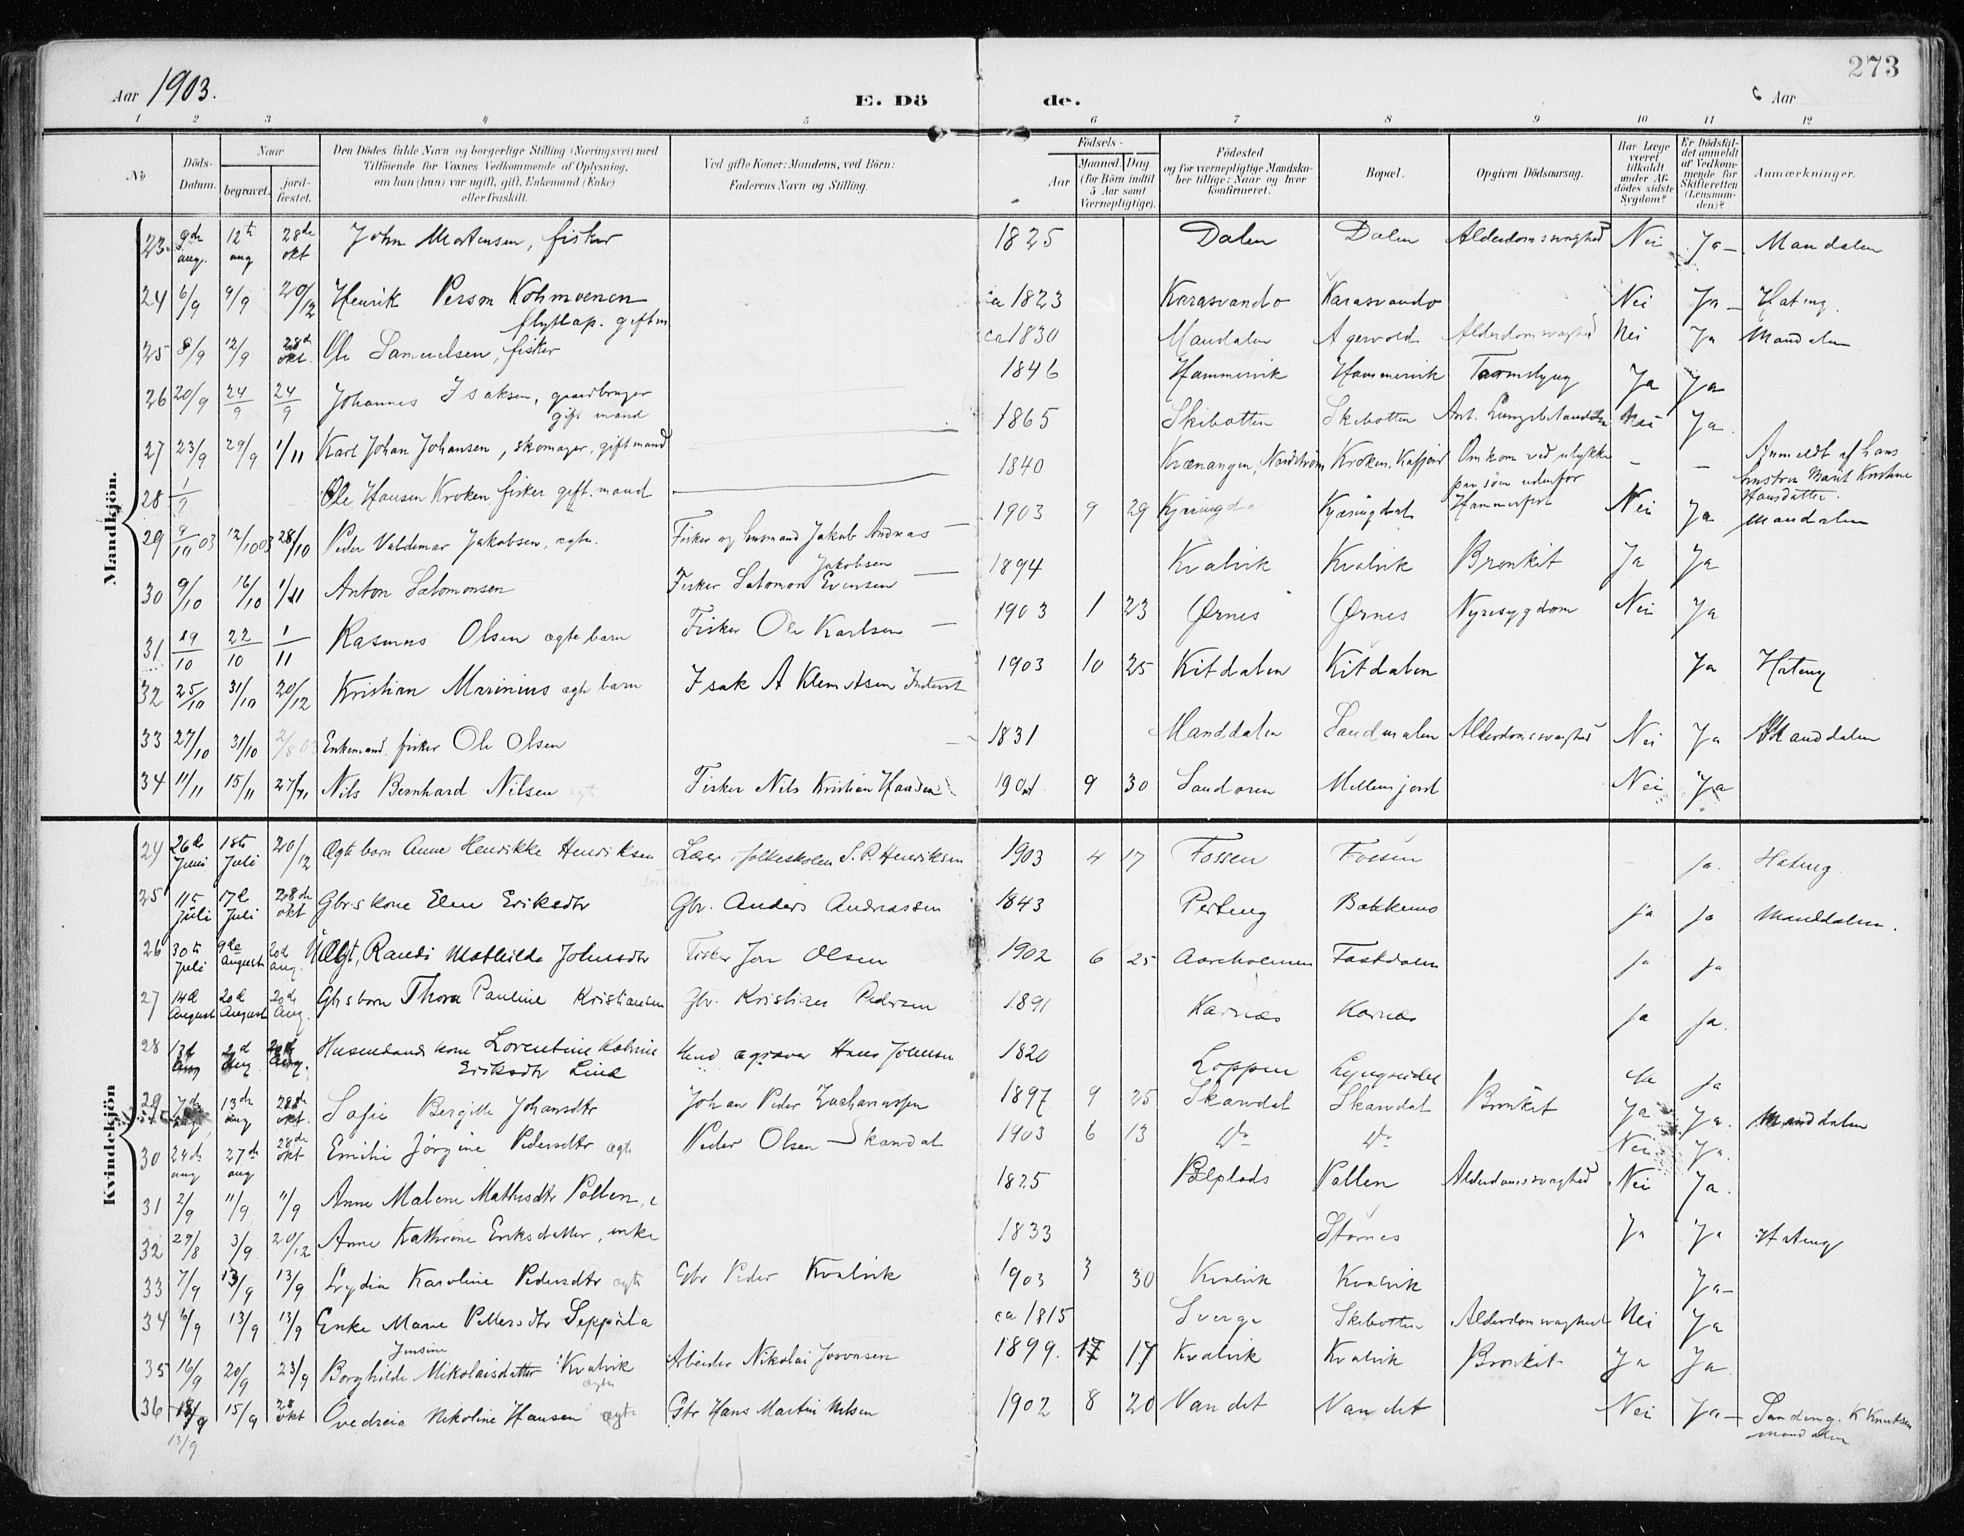 273
Aar 1903.
E. Dö de.
Aar
1 2 3 4 5 6 7 8 9 10 11 12
No
Döds-Datum.
Naar
begravet.
jord-fæstet.
Den Dödes fulde Navn og borgerlige Stilling (Næringsvei) med
Tilföiende for Voxnes Vedkommende af Oplysning,
om han (hun) var ugift, gift, Enkemand (Enke)
eller fraskilt.
Ved gifte Koner: Mandens, ved Börn:
Faderens Navn og Stilling.
Födsels-
Aar
Maaned. Dag.
(for Börn indtil 5 Aar samt Værnepligtige).
Födested
og for værnepligtige Mandskaber tillige: Naar og hvor konfirmeret.
Bopæl.
Opgiven Dödsaarsag.
Har Læge været tilkaldt under Afdödes sidste Sygdom?
Er Dödsfaldet anmeldt af Vedkommende for Skifteretten (Lensmanden)?
Anmærkninger.
Mandkjön.
23 9de aug. 12te aug 28de okt John Mortensen, fisker 1825 Dalen Dalen Alderdomssvaghed Nei Ja Mandalen
24 6/9 9/9 20/12 Henrik Person Kohmoenen flytlap. gift m ca 1823 Karasvando Karasvando Nei Ja Hateng
25 8/9 12/9 28de okt. Ole Samuelsen, fisker ca 1830 Mandalen Agervold Alderdomsvaghed Nei Ja Mandalen
26 20/9 24/9 24/9 Johannes Isaksen, gaardbruger gift mand 1846 Hammervik Hammervik Ja Ja
27 23/9 29/9 1/11 Karl Johan Johansen, skomager, gift mand 1865 Skibotten Skibotten Nei Ja
28 Ole Hansen Kroken fisker gift. mand 1840 Kvænangen, Nordström Kroken, Kafjord Omkom ved ulykke paa söen udenfor Hammerfest Anmeldt af hans hustru Marit Kristine Hansdatter.
29 9/10 03 12/10 03 28/10 Peder Valdemar Jakobsen, ægte. Fisker og husmand Jakob Andreas Jakobsen 1903 9 29 Kjæringdal Kjæringdal Nei Ja Mandalen
30 9/10 16/10 1/11 Anton Salomonsen Fisker Salomon Evensen 1894 Kvalvik Kvalvik Bronkit Ja Ja
31 19/10 22/10 1/11 Rasmus Olsen ægte barn Fisker Ole Karlsen 1903 1 23 Ørnes Ørnes Nyresygdom Nei Ja
32 25/10 31/10 20/12 Kristian Marinius ægte barn Isak A Klemetsen Inderst 1903 10 25 Kitdalen Kitdalen Ja Hateng
33 27/10 31/10 Enkemand. fisker Ole Olsen 1831 Manddalen Alderdomssvaghed Nei Ja Manddalen
34 11/11 15/11 27/11 Nils Bernhard Nilsen ægte Fisker Nils Kristian Hansen 1901 9 30 Sandoren Mellemjord Nei Ja
Kvindekjön
24 26de Juni 18te Juli 20/12 Ægte barn Anne Henrikke Henriksen Lærer i folkeskolen S. P. Henriksen 1903 4 17 Fossen Fossen Ja. Hateng.
25 11te Juli 17de Juli 28de okt Gbr.s kone Elen Eriksdtr Gbr. Anders Andreassen 1843 Perteng Bakkemo Ja Ja Manddalen.
26 30te Juli 9de August 20de Aug. Ægt. Randi Mathilde Johnsdtr Fisker Jon Olsen 1902 6 25 Aarøholmen Ja Ja
27 14de August 20de August 20de Aug. Gbrs barn Thora Pauline Kristiansen Gbr. Kristian Pedersen 1891 Karnæs Karnæs Ja Ja.
28 Husmands kone Lorentine Katrine Eriksdtr Lind Hans Johnsen 1820 Loppen Lyngseidet Ja Ja
29 7de 13de aug 28de okt. Sofie Bergitte Johansdtr Johan Peder Zachariassen 1897 9 25 Skardal Skardal Bronkit Ja Ja. Manddalen
30 24de aug 27de aug 28de okt Emilie Jørgine Pedersdtr ægte Peder Olsen Skardal 1903 6 13 Do Do Nei Ja.
31 2/9 11/9 11/9 Anne Malene Mathisdtr Pollen, e 1825 Pollen Alderdomssvaghed Nei Ja.
32 29/8 3/9 20/12 Anne Kathrine Eriksdatter, enke 1833 Stornes Ja Ja Hateng
33 7/9 13/9 13/9 Lydia Karoline Pedersdtr ægte Gbr Peder Kvalvik 1903 3 30 Kvalvik Kvalvik Ja
34 6/9 13/9 13/9 Enke Marie Pettersdtr Seppäla ca 1815 Sverge Skibotten Alderdomsvaghed Nei Ja
35 16/9 20/9 23/9 Borghilde Jensine Nikolaisdatter Kvalvik ægte Arbeider Nikolai Josvasen 1899. 17 Kvalvik Kvalvik Bronkit Ja Ja
36 13/9 15/9 28 okt Ovedreia Nikoline Hansen ægte Gbr Hans Martin Nilsen 1902 8 20 Vandet Vandet Nei Ja Sandeng. K Knutsen Mandalen
13/9